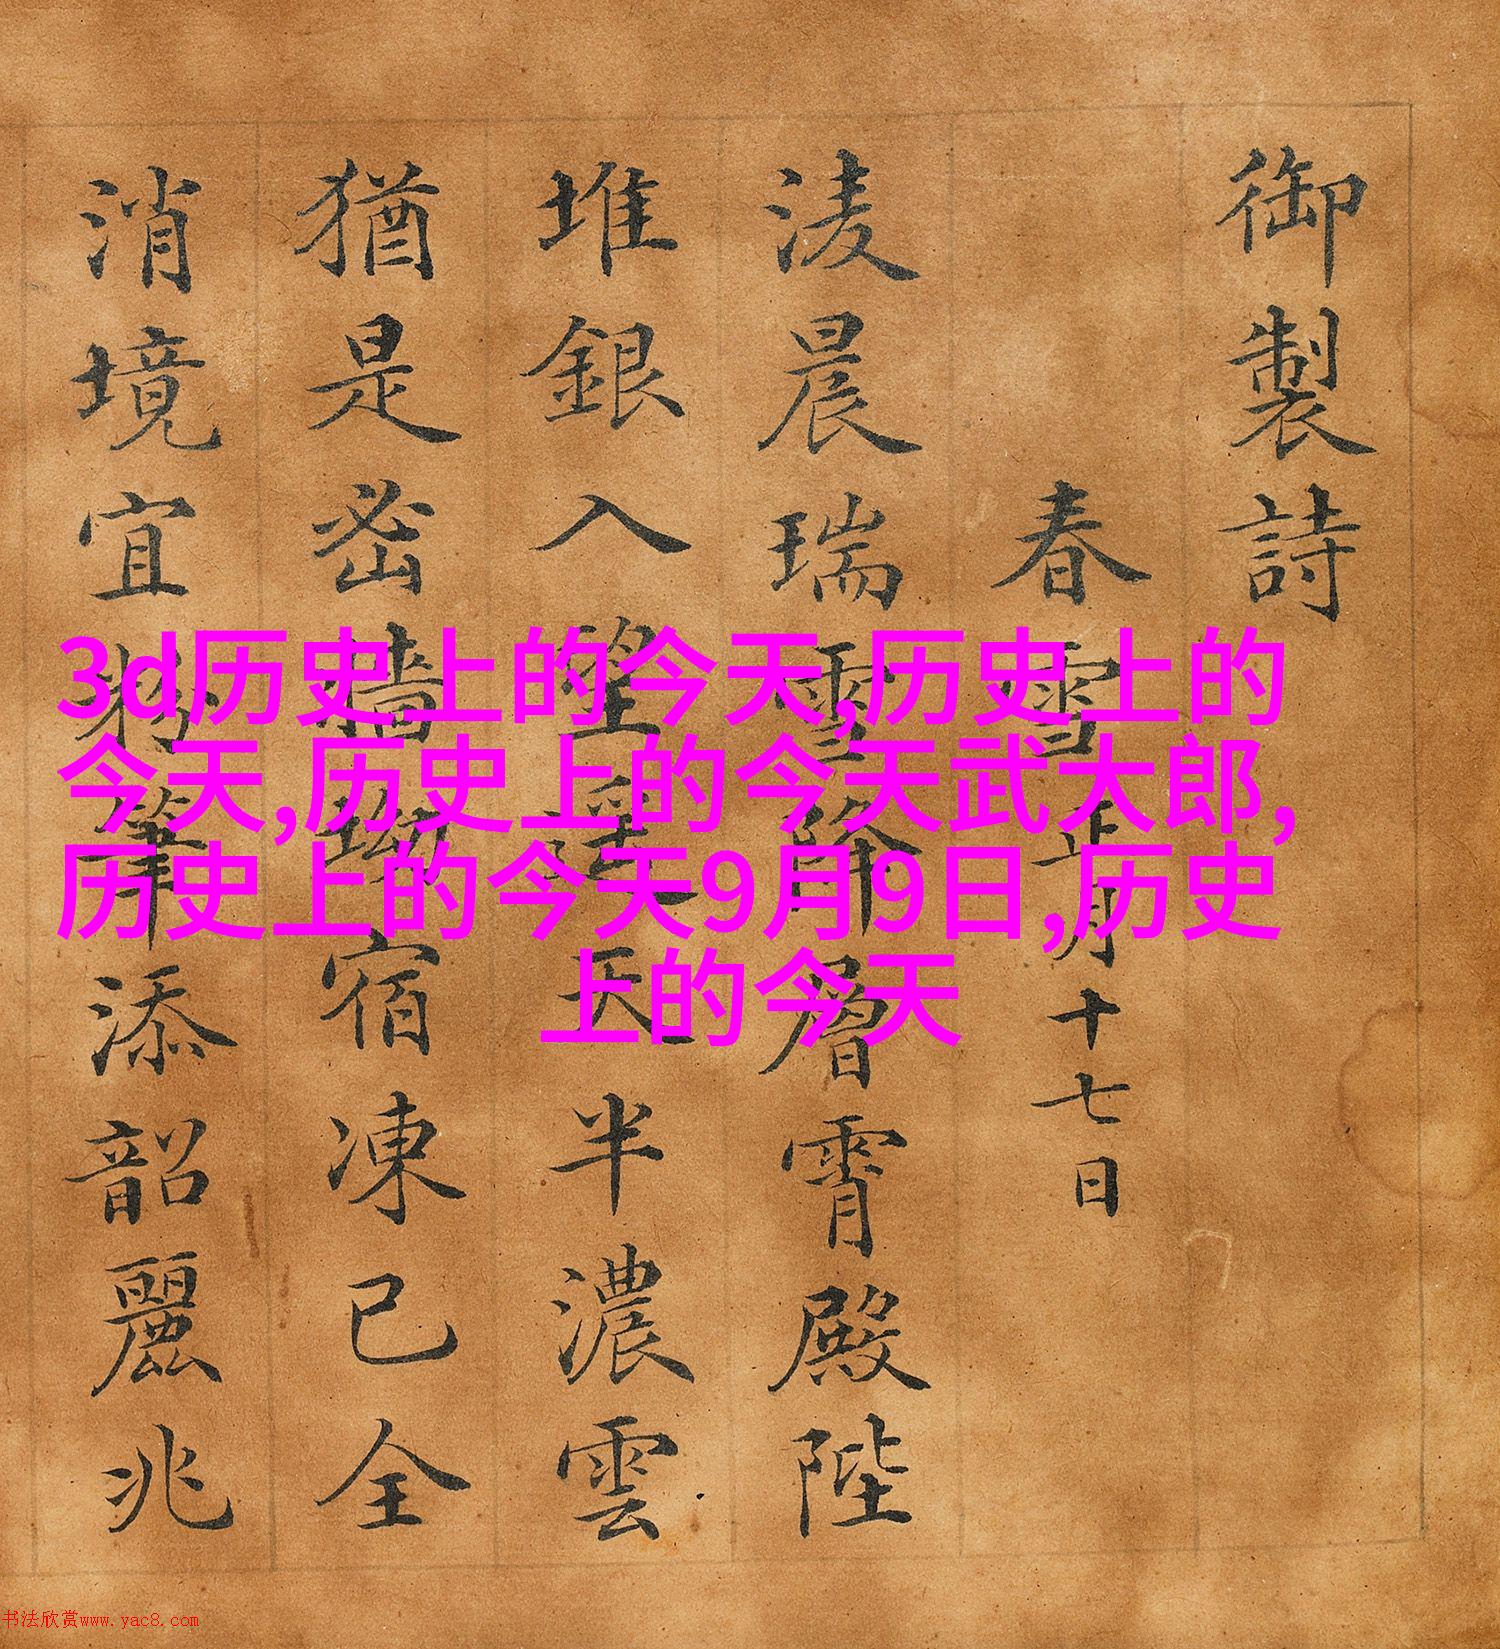 御製詩
春雪正月十七日
淩晨瑞雪降層霄殿陛
堆銀入望遥天半濃雲
猶是密墻坳宿凍已全
消境宜筆添韶麗兆
3d历史上的今天,历史上的
今天,历史上的今天武大郎,
历史上的今天9月9日,历史
上的今天
书法欣赏www.yac8.com